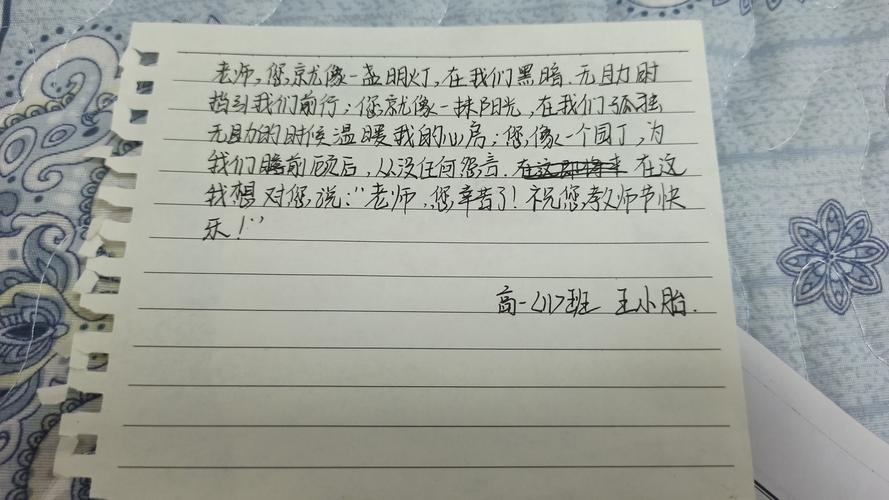 老师,您就像一盏明灯,在我们黑暗.无助时
指引我们前行;您就像一抹阳光,在我们孤独
无助的时候温暖我的心房;您,像一个园丁,为
我们瞻前顾后,从没任何怨言. 在这
我想对您说:"老师,您辛苦了!祝您,教师节快
乐!"
高一<1>班 王小胎.